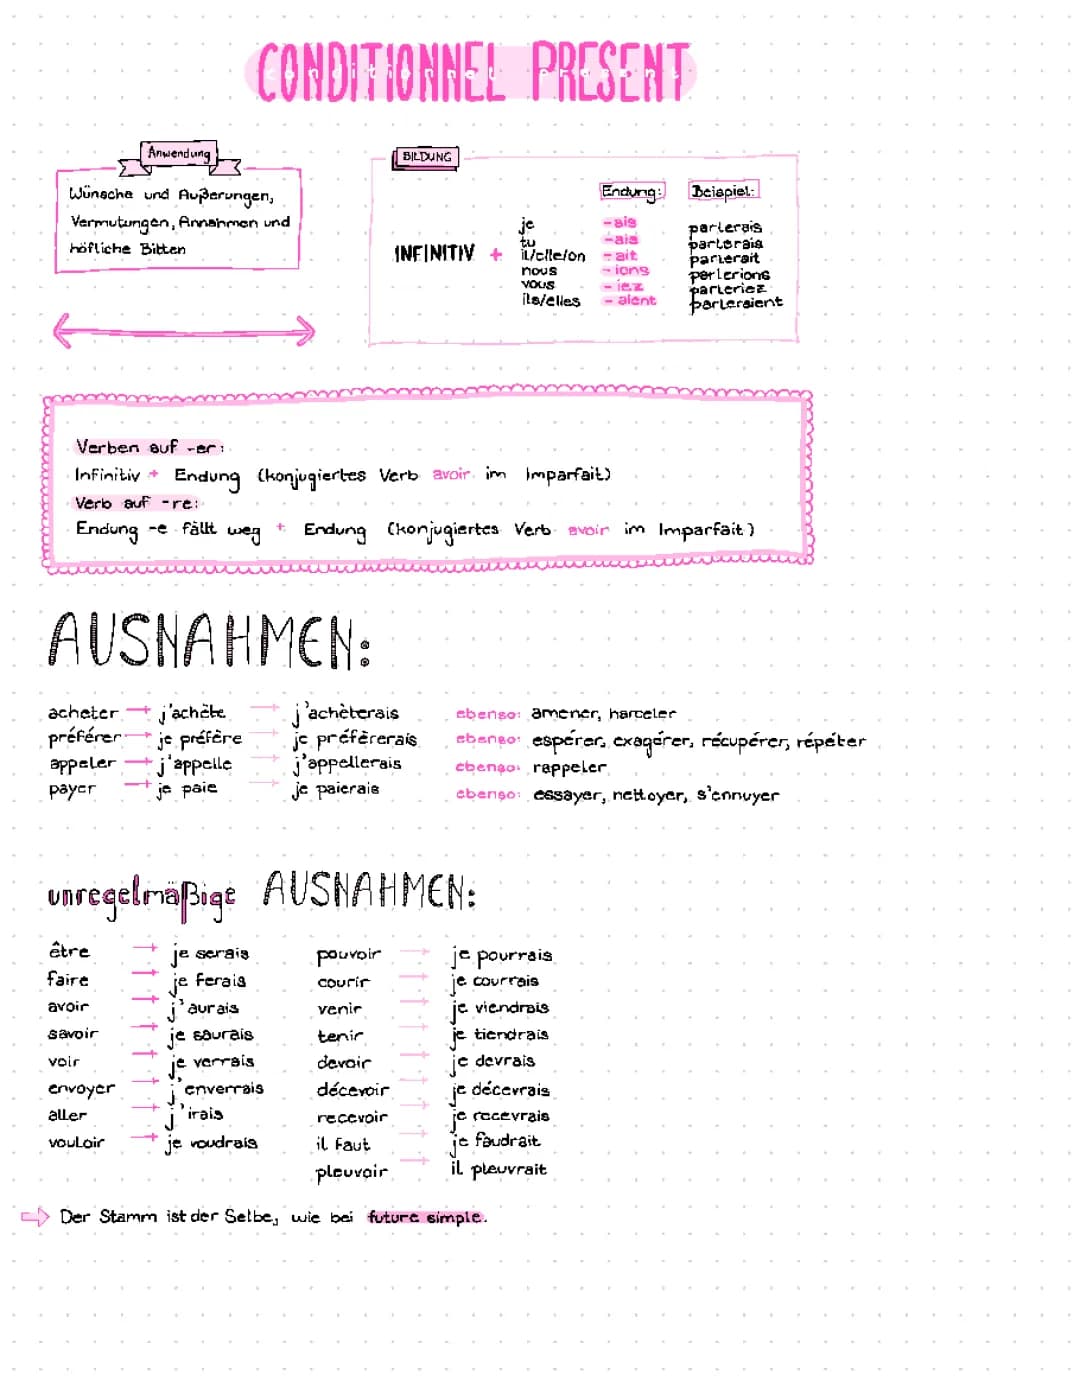 CONDITIONNEL PRESENT
conditionnel present
Anwendung
Wünsche und Außerungen,
Vermutungen, Annahmen und
höfliche Bitten
BILDUNG
Endung: Beispiel:
INFINITIV +
je -ais parlerais
tu -ais parlerais
il/elle/on -ait parlerait
nous -ions parlerions
vous -iez parleriez
ils/elles -aient parleraient
Verben auf -er:
Infinitiv + Endung (konjugiertes Verb avoir im Imparfait)
Verb auf -re:
Endung -e fällt weg + Endung (konjugiertes Verb avoir im Imparfait)
AUSNAHMEN:
acheter → j'achète → j'achèterais ebenso: amener, harceler
préférer → je préfère → je préfèrerais ebenso: espérer, exagérer, récupérer, répéter
appeler → j'appelle → j'appellerais ebenso: rappeler
payer → je paie → je paierais ebenso: essayer, nettoyer, s'ennuyer
unregelmäßige AUSNAHMEN:
être → je serais pouvoir → je pourrais
faire → je ferais courir → je courrais
avoir → j'aurais venir → je viendrais
savoir → je saurais tenir → je tiendrais
voir → je verrais devoir → je devrais
envoyer → j'enverrais décevoir → je décevrais
aller → j'irais recevoir → je recevrais
vouloir → je voudrais il faut → je faudrait
pleuvoir → il pleuvrait
⇒ Der Stamm ist der Selbe, wie bei future simple.